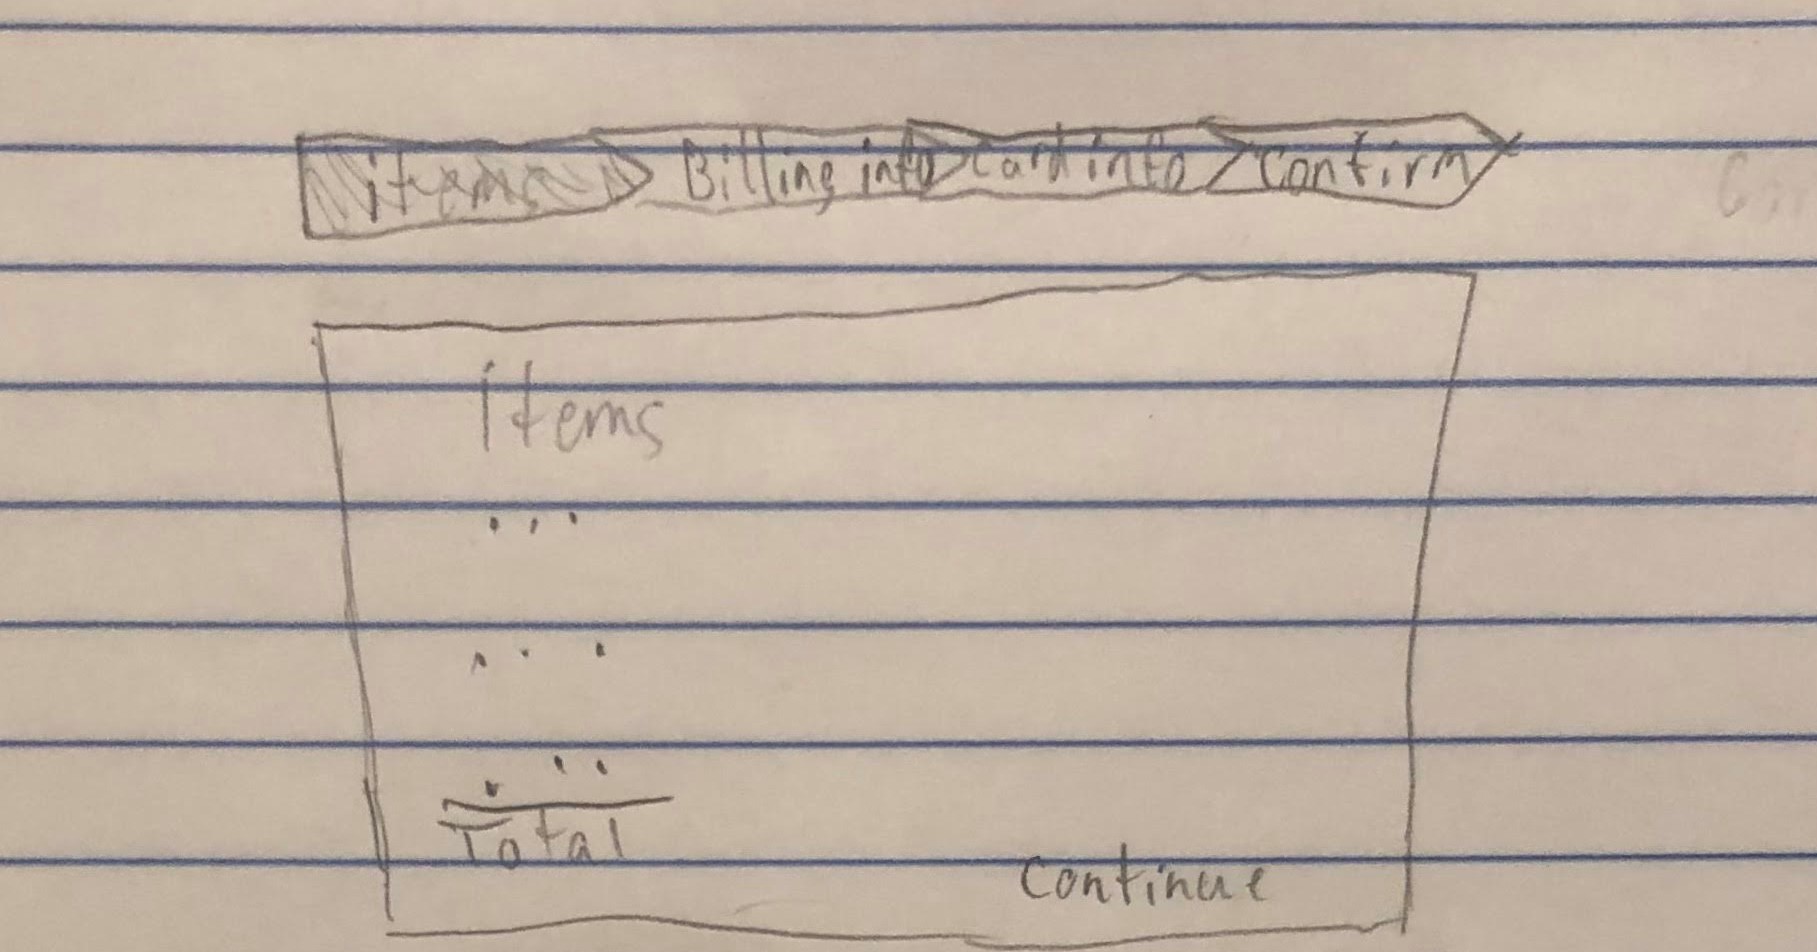 items Billing info Card info Confirm
Items
...
...
...
Total
Continue